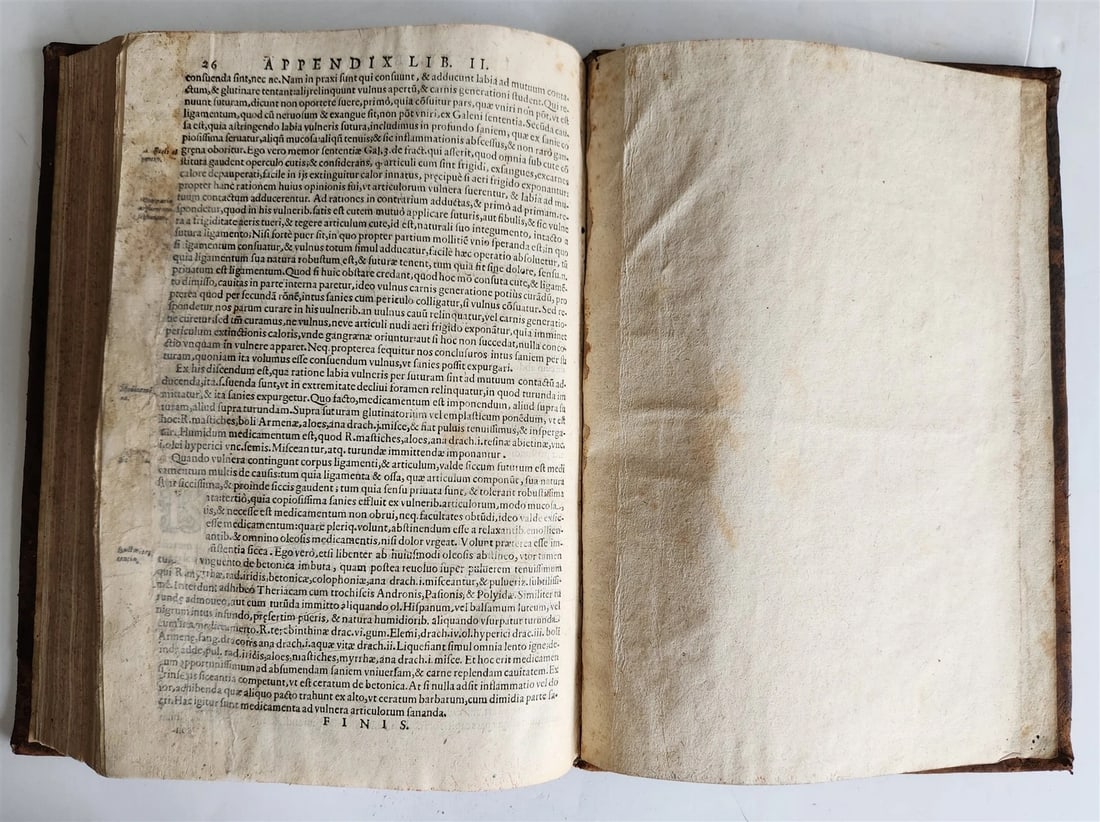 26 APPENDIX LIB. II.
consuenda sint, nec ne. Nam in praxi sunt qui consuunt, & adducunt labia ad mutuum conta-
ctum, & glutinare tentant: alij relinquunt vulnus apertū, & carnis generationi student. Qui re-
nuunt suturam, dicunt non oportere suere, primò, quia cōsuitur pars, quæ vniri non põt, vt est
ligamentum, quod cū neruosum & exangue sit, non põt vniri, ex Galeni sententia. Secūda cau-
sa est, quia astringendo labia vulneris sutura, includimus in profundo saniem, quæ ex sanie co
piosissima seruatur, aliqñ mucosa: aliqñ tenuis; & sic inflammationis abscessus, & non rarò gan-
grena oboritur. Ego vero memor sententiæ Gal. 3. de fract. qui asserit, quod omnia sub cute cō
stituta gaudent operculo cutis; & considerans, q articuli cum sint frigidi, exsangues, excarnes
calore depauperati, facile in ijs extinguitur calor innatus, præcipuè si aeri frigido exponantur
propter hanc rationem huius opinionis sui, vt articulorum vulnera suerentur, & labia ad mu-
tuum contactum adducerentur. Ad rationes in contrarium adductas, & primò ad primam. re-
spondetur, quod in his vulnerib. satis est cutem mutuò applicare suturis, aut fibulis, & sic vulne
ra a frigiditate aeris tueri, & tegere articulum cute, id est, naturali suo integumento, intacto a
sutura ligamento: Nisi fortè puer sit, in quo propter partium mollitiē vnio speranda est; in quo
si ligamentum consuatur, & vulnus totum simul adducatur, facile hæc operatio absoluetur, tū
quia ligamentum sua natura robustum est, & suturæ tenent, tum quia fit sine dolore, sensu.n.
priuatum est ligamentum. Quod si huic obstare credant, quod hoc mō consuta cute, & ligamē-
to dimisso, cauitas in parte interna paretur, ideo vulnus carnis generatione potius curādū, pro
pterea quod per secundā rōnē, intus sanies cum periculo colligatur, si vulnus cōsuatur. Sed re-
spondetur nos parum curare in his vulnerib. an vulnus cauū relinquatur, vel carnis generatio-
ne curetur: sed tm̄ curamus, ne vulnus, neve articuli nudi aeri frigido exponātur, quia imminet
periculum extinctionis caloris, vnde gangrænæ oriuntur: aut si hoc non succedat, nulla conco-
ctio vnquam in vulnere apparet. Neq. propterea sequitur nos conclusuros intus saniem per su
turam, quoniam ita volumus esse consuendum vulnus, vt sanies possit expurgari.
Ex his discendum est, qua ratione labia vulneris per suturam sint ad mutuum contactū ad-
ducenda, ita.s. suenda sunt, vt in extremitate decliui foramen relinquatur, in quod turunda im
mittatur, & ita sanies expurgetur. Quo facto, medicamentum est imponendum, aliud supra su
turam, aliud supra turundam. Supra suturam glutinatorium vel emplasticum ponēdum, vt est
hoc: R. mastiches, boli Armenæ, aloes, ana drach. j. misce, & fiat puluis tenuissimus, & insperga-
tur. Humidum medicamentum est, quod R. mastiches, aloes, ana drach. i. resinæ abietinæ, vnc.
i. olei hyperici vnc. semis. Misceantur, atq. turundæ immittendæ imponantur.
Quando vulnera contingunt corpus ligamenti, & articulum, valde siccum futurum est medi
camentum multis de causis: tum quia ligamenta & ossa, quæ articulum componūt, sua natura
sūt siccissima, & proinde siccis gaudent; tum quia sensu priuata sunt, & tolerant robustissima
tertiò, quia copiosissima sanies effluit ex vulnerib. articulorum, modo mucosa,
is, & necesse est medicamentum non obrui, neq. facultates obtūdi, ideo valde exsic-
esse medicamentum: quare pleriq. volunt, abstinendum esse a relaxantib. emollien-
antib. & omnino oleosis medicamentis, nisi dolor vrgeat. Volunt præterea esse im-
sistentia sicca. Ego verò, etsi libenter ab huiusmodi oleosis abstineo, vtor tamen
vnguento de betonica imbuta, quam postea reuoluo super puluerem tenuissimum
qui R. myrrhæ, rad. iridis, betonicæ, colophoniæ, ana drach. i. misceantur, & pulueriz. subtilissi-
mè. Interdum adhibeo Theriacam cum trochiscis Andronis, Pasionis, & Polyidæ. Similiter tu
rundæ admoueo, aut cum turūda immitto aliquando ol. Hispanum, vel balsamum luteum, vel
nigrum intus infundo, præsertim pueris, & natura humidiorib. aliquando vsurpatur turunda
cum in medicamento. R. terebinthinæ drac. vi. gum. Elemi, drach. iv. ol. hyperici drac. iii. boli
Armenę, sang. draconis ana drach. i. aquæ vitæ drach. ii. Liquefiant simul omnia lento igne; de-
inde adde, pul. rad. iridis, aloes, mastiches, myrrhæ, ana drach. i. misce. Et hoc erit medicamen
tum opportunissimum ad absumendam saniem vniuersam, & carne replendam cauitatem. Ex
siccantia competunt, vt est ceratum de betonica. At si nulla adsit inflammatio vel do
lor, adhibenda quæ aliquo pacto trahunt ex alto, vt ceratum barbatum, cum dimidia parte sa-
cri. Hæc igitur sunt medicamenta ad vulnera articulorum sananda.
FINIS.